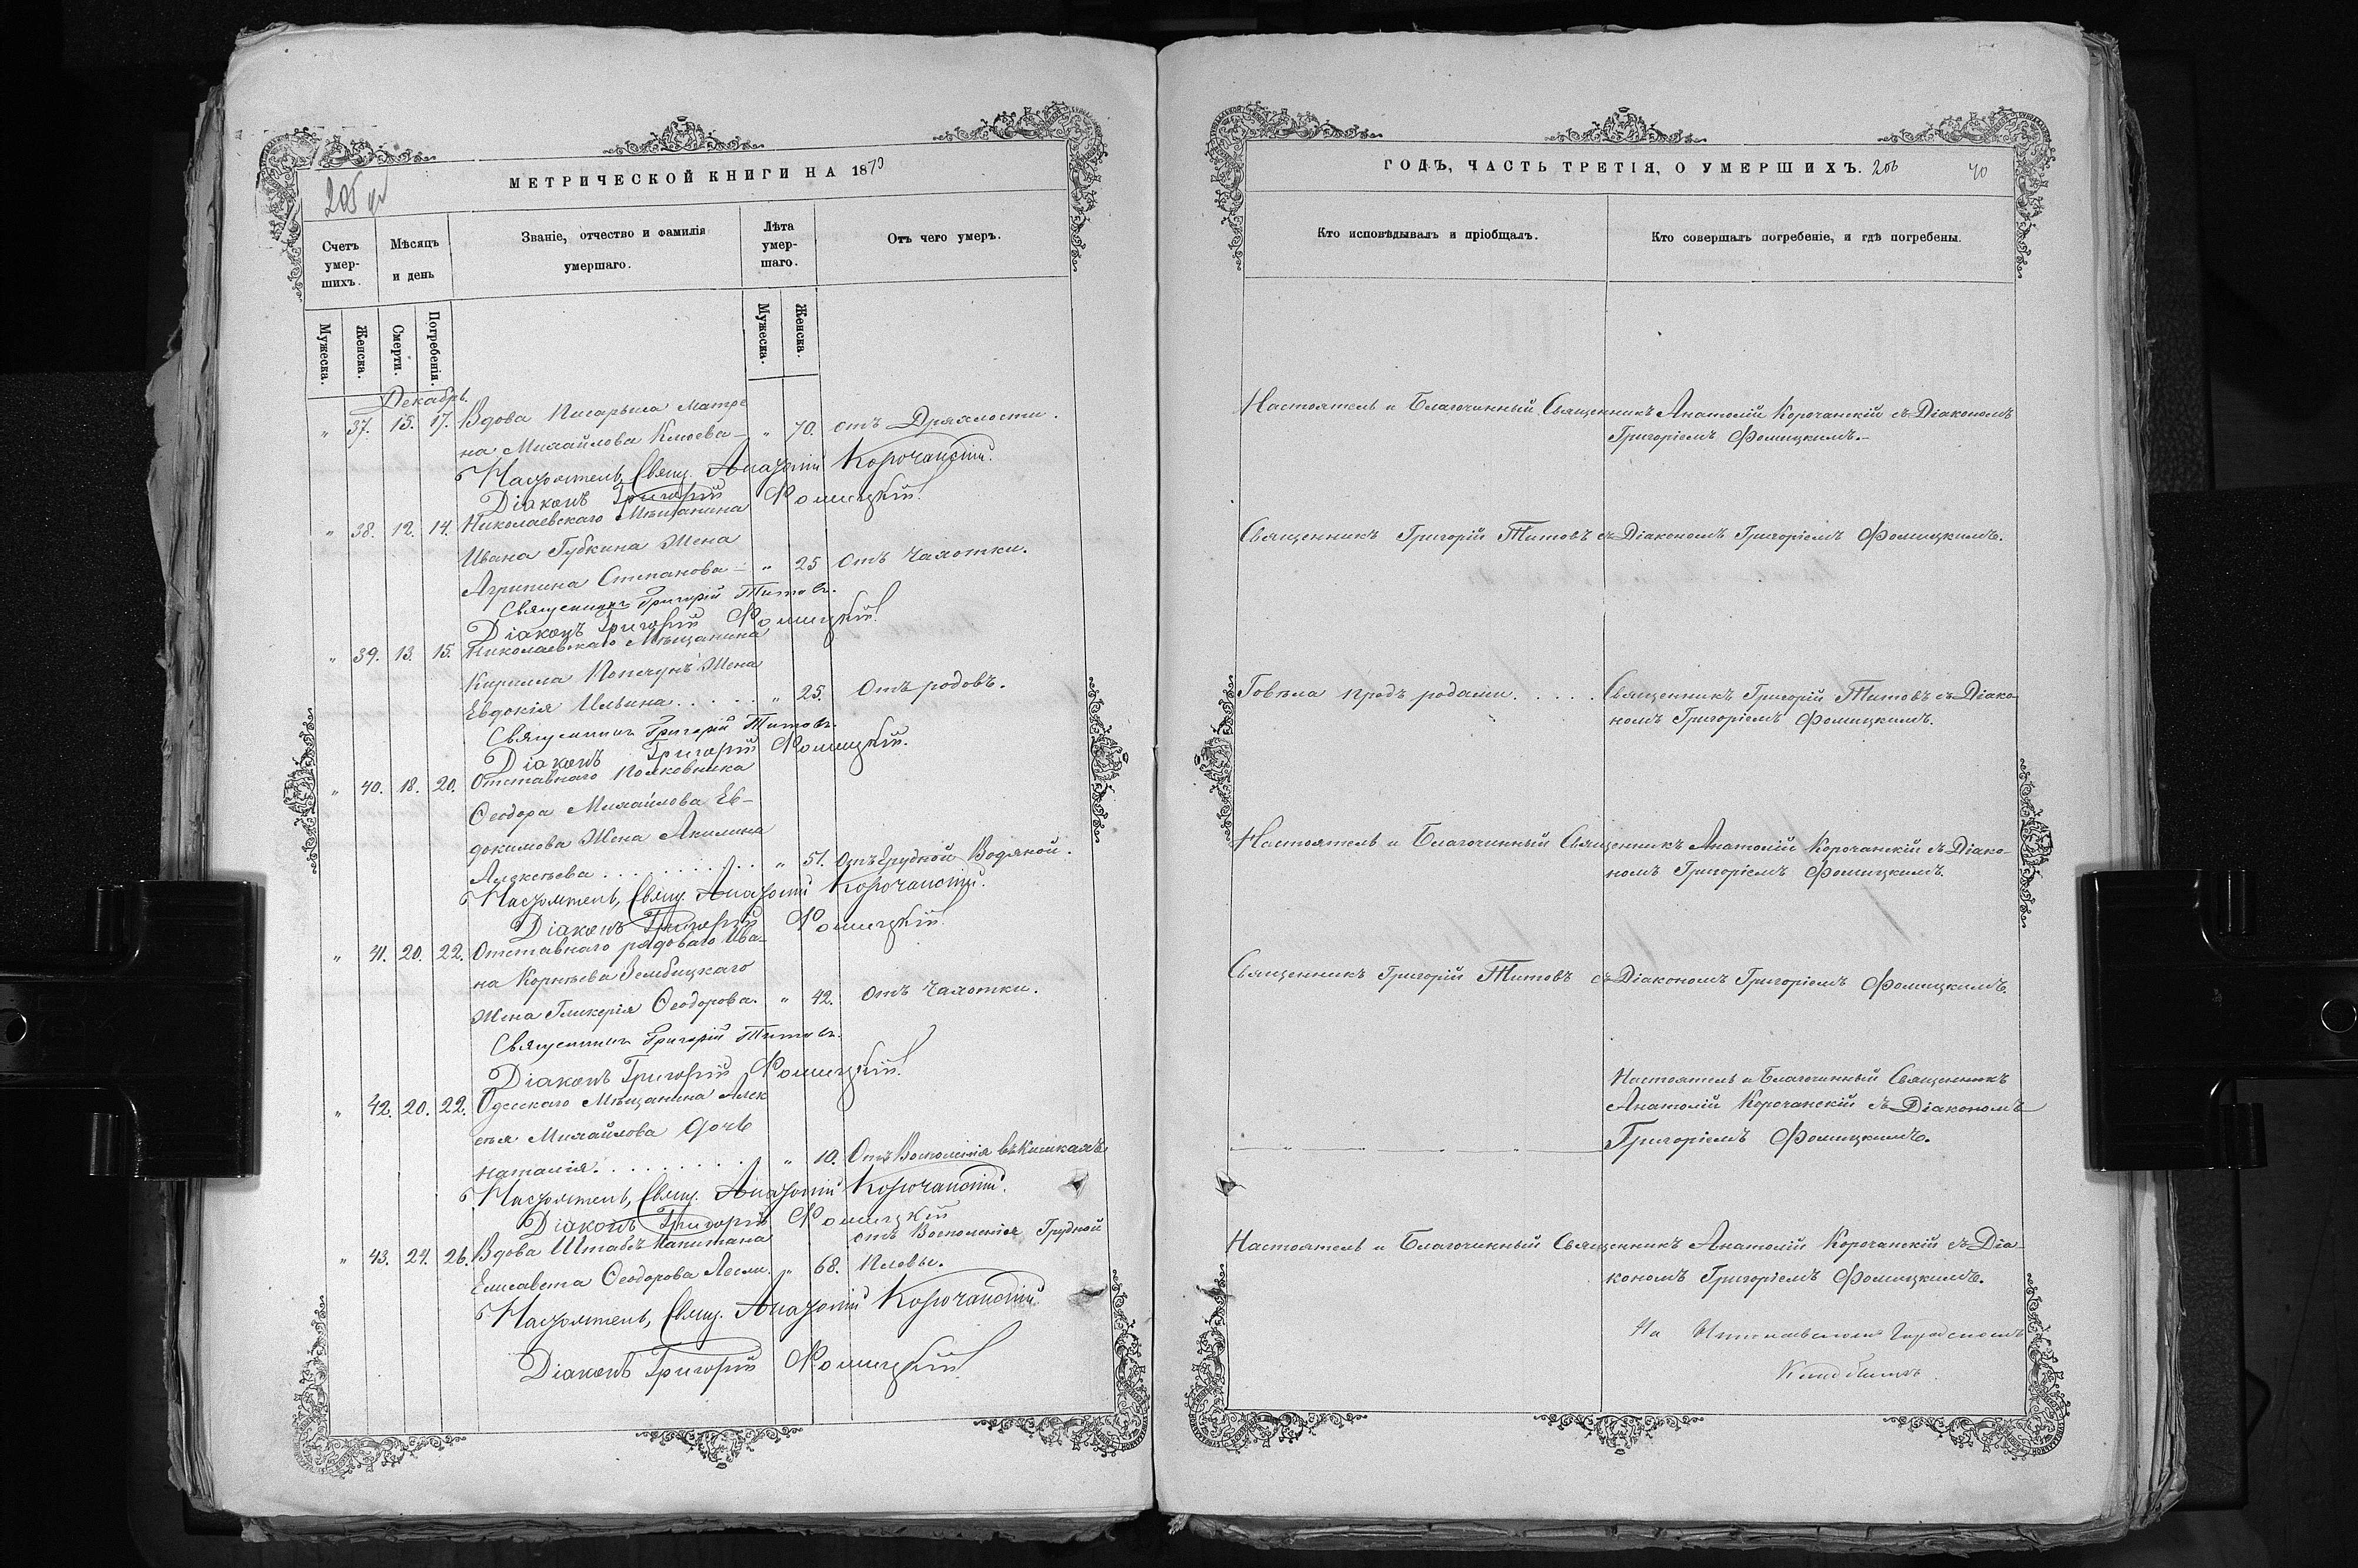 МЕТРИЧЕСКОЙ КНИГИ НА 1870
205
Счетъ умер-шихъ.
Мѣсяцъ и день
Званіе, отчество и фамилія умершаго.
Лѣта умер-шаго.
Отъ чего умеръ.
Мужеска.
Женска.
Смерти.
Погребенія.
Мужеска.
Женска.
Декабрь.
" 37. 15. 17. Вдова Писарьша Матре
на Михайлова Клюева — " 70. отъ Дряхлости.
Настоятель, Свящ. Анатолій Корочанскій.
Діаконъ Григорій Фомицкій.
" 38. 12. 14. Николаевскаго Мѣщанина
Ивана Губкина Жена
Агрипина Степанова — " 25 Отъ Чахотки.
Священникъ Григорій Титовъ.
Діаконъ Григорій Фомицкій.
" 39. 13. 15. Николаевскаго Мѣщанина
Кирилла Жена
Евдокія Ильина. . . . . " 25. Отъ родовъ.
Священникъ Григорій Титовъ.
Діаконъ Григорій Фомицкій.
" 40. 18. 20. Отставнаго Полковника
Ѳеодора Михайлова Ев-
докимова Жена Акилина
Алексѣева . . . . . . . . . " 51. Отъ Грудной Водяной.
Настоятель, Свящ. Анатолій Корочанскій.
Діаконъ Григорій Фомицкій.
" 41. 20. 22. Отставнаго рядоваго Ива-
на Корнѣева Зембицкаго
Жена Гликерія Ѳеодорова. " 42. Отъ Чахотки.
Священникъ Григорій Титовъ.
Діаконъ Григорій Фомицкій.
" 42. 20. 22. Одесскаго Мѣщанина Алек
сѣя Михайлова дочь
Наталія. . . . . . . . . " 10. Отъ Воспаленія въ Кишкахъ
Настоятель, Свящ. Анатолій Корочанскій.
Діаконъ Григорій Фомицкій
отъ Воспаленія Грудной
" 43. 24. 26. Вдова Штабсъ Капитана
Елисавета Ѳеодорова " 68. Плевы.
Настоятель, Свящ. Анатолій Корочанскій
Діаконъ Григорій Фомицкій
ГОДЪ, ЧАСТЬ ТРЕТІЯ, О УМЕРШИХЪ. 206 40
Кто исповѣдывалъ и пріобщалъ.
Кто совершалъ погребеніе, и гдѣ погребены.
Настоятель и Благочинный Священникъ Анатолій Корочанскій съ Діакономъ
Григоріемъ Фомицкимъ.—
Священникъ Григорій Титовъ съ Діакономъ Григоріемъ Фомицкимъ.
Говѣла предъ родами. . . . . Священникъ Григорій Титовъ съ Діако-
номъ Григоріемъ Фомицкимъ.
Настоятель и Благочинный Священникъ Анатолій Корочанскій съ Діако-
номъ Григоріемъ Фомицкимъ.
Священникъ Григорій Титовъ съ Діакономъ Григоріемъ Фомицкимъ.
Настоятель и Благочинный Священникъ
Анатолій Корочанскій съ Діакономъ
Григоріемъ Фомицкимъ.
Настоятель и Благочинный Священникъ Анатолій Корочанскій съ Діа-
кономъ Григоріемъ Фомицкимъ.
На Николаевскомъ Городскомъ
Кладбищѣ.